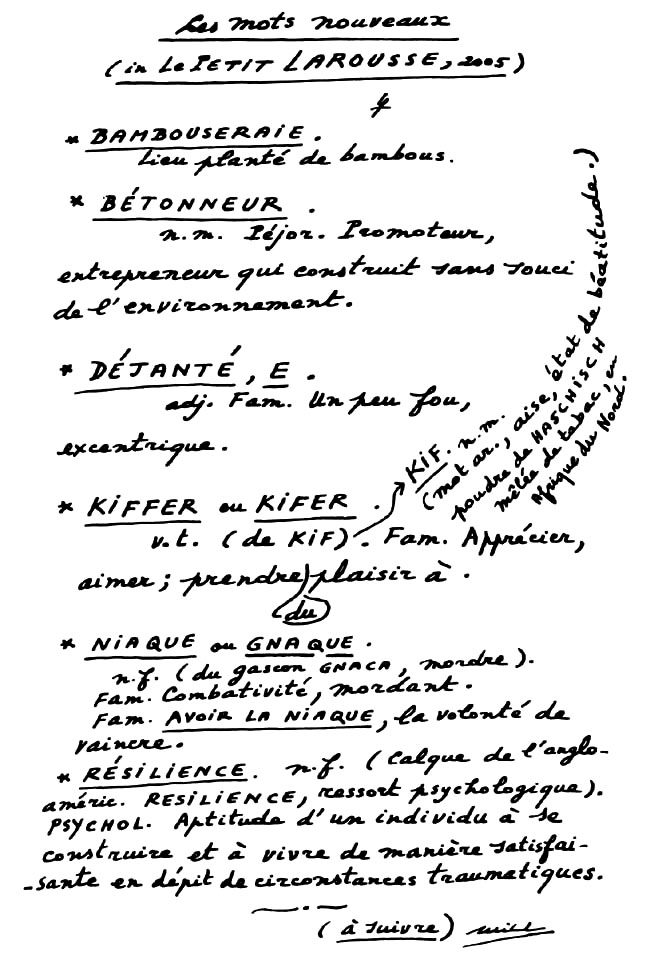 Les mots nouveaux
(in Le PETIT LAROUSSE, 2005)
* BAMBOUSERAIE.
Lieu planté de bambous.
* BÉTONNEUR.
n.m. Péjor. Promoteur,
entrepreneur qui construit sans souci
de l'environnement.
* DÉJANTÉ, E.
adj. Fam. Un peu fou,
excentrique.
* KIFFER ou KIFER.
v.t. (de KIF). Fam. Apprécier,
aimer ; prendre plaisir à.
du
KIF. n.m.
(mot ar., aise, état de béatitude.)
poudre de HASCHISCH
mêlée de tabac, en
Afrique du Nord.
* NIAQUE ou GNAQUE.
n.f. (du gascon GNACA, mordre).
Fam. Combativité, mordant.
Fam. AVOIR LA NIAQUE, la volonté de
vaincre.
* RÉSILIENCE. n.f. (Calque de l'anglo-
améric. RESILIENCE, ressort psychologique).
PSYCHOL. Aptitude d'un individu à se
construire et à vivre de manière satisfai-
-sante en dépit de circonstances traumatiques.
(à suivre)